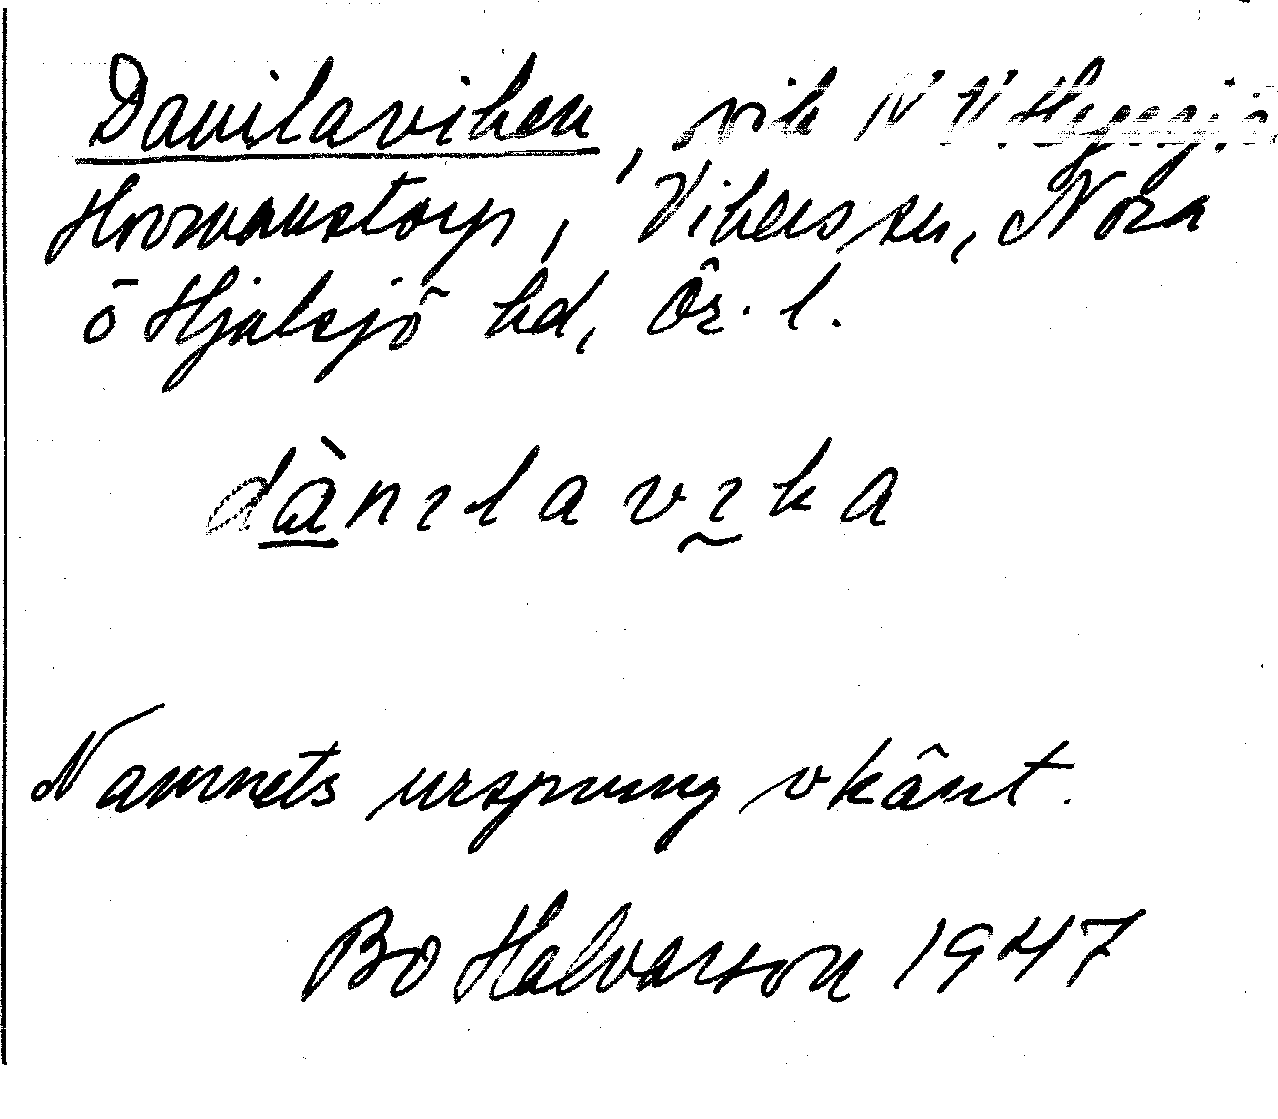 Danilaviken, vik i V
Hovmanstorp, Vikers sn, Nora
o Hjulsjö hd, Ör. l.
dànɪlavɪka
Namnets ursprung okänt.
Bo Halvarson 1947